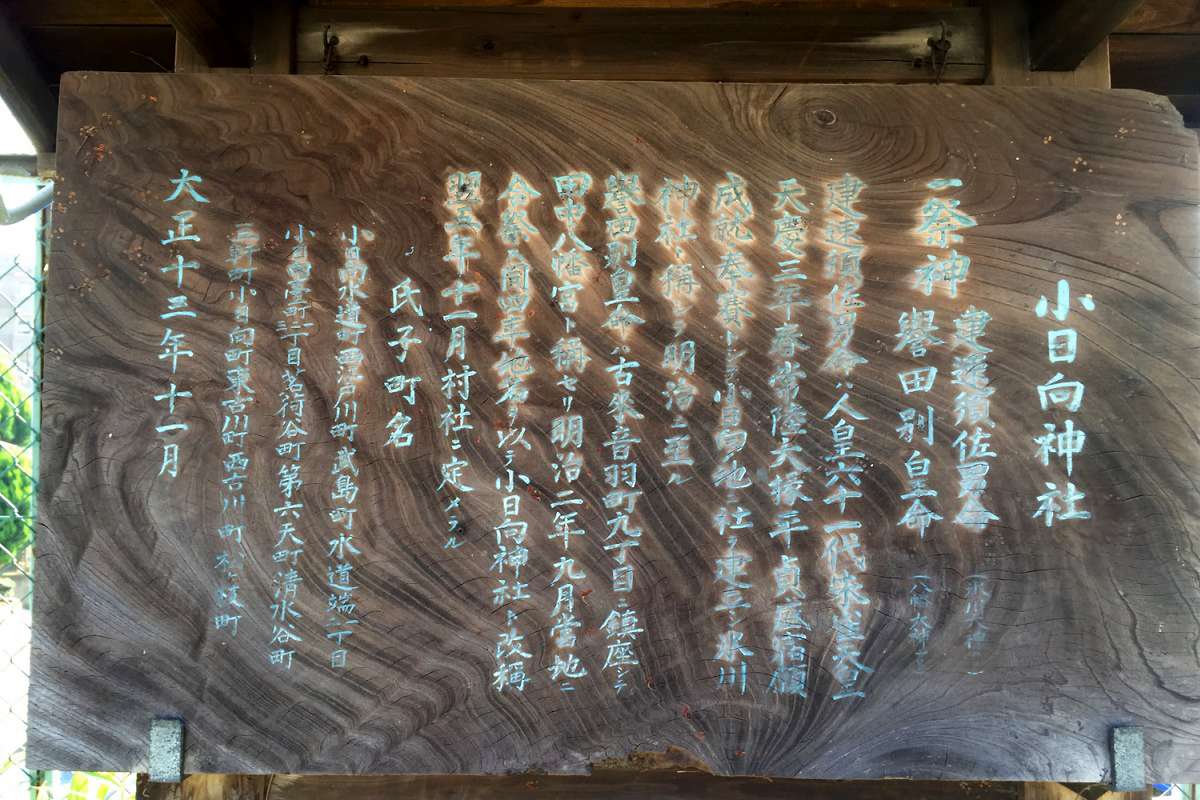 小日向神社
一祭神 建速須佐男命（氷川大神）
誉田別皇命（八幡大神）
建速須佐男命ハ人皇六十一代朱雀天皇
天慶三年春常陸大掾平貞盛宿願
成就奉賽トシテ小日向ノ地ニ社ヲ建立シ氷川
神社ト稱シテ明治ニ至ル
譽田別皇命ハ古來音羽町九丁目ニ鎮座シテ
田中八幡宮ト稱セリ明治二年九月當地ニ
合蓄シ同四年地名ヲ以テ小日向神社ト改稱
翌五年十一月村社ニ定メラル
氏子町名
小日向水道町西江戸川町武島町水道端二丁目
小日向臺町三丁目茗荷谷町第六天町清水谷町
三軒町小日向町東古川町西古川町松ヶ枝町
大正十三年十一月